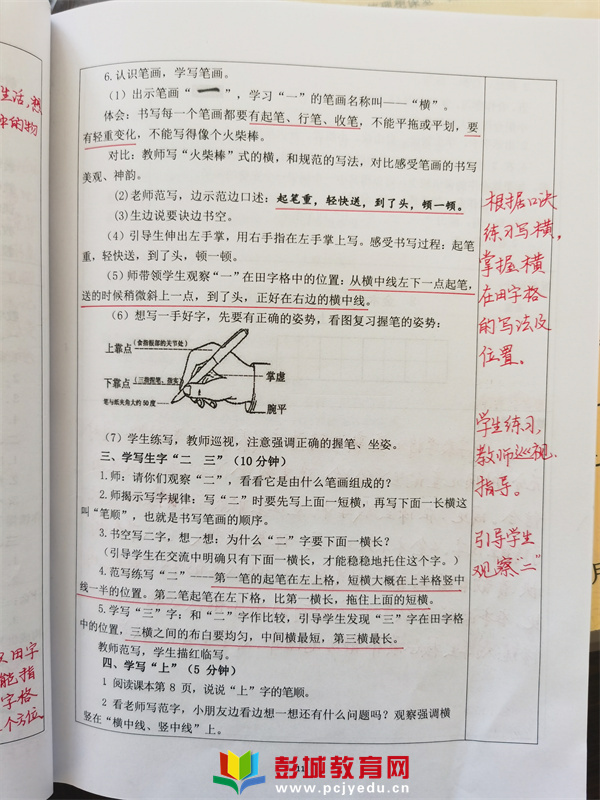 生活,
的物
6.认识笔画，学写笔画。
（1）出示笔画“一”，学习“一”的笔画名称叫——“横”。
体会：书写每一个笔画都要有起笔、行笔、收笔，不能平拖或平划，要
有轻重变化，不能写得像个火柴棒。
对比：教师写“火柴棒”式的横，和规范的写法，对比感受笔画的书写
美观、神韵。
(2)老师范写，边示范边口述：起笔重，轻快送，到了头，顿一顿。
(3)生边说要诀边书空。
（4）引导生伸出左手掌，用右手指在左手掌上写。感受书写过程：起笔
重，轻快送，到了头，顿一顿。
（5）师带领学生观察“一”在田字格中的位置：从横中线左下一点起笔，
送的时候稍微斜上一点，到了头，正好在右边的横中线。
（6）想写一手好字，先要有正确的姿势，看图复习握笔的姿势：
上靠点（食指根部的关节处）
下靠点（三指捏笔，指实）
掌虚
笔与纸夹角大约50度
腕平
（7）学生练写，教师巡视，注意强调正确的握笔、坐姿。
三、学写生字“二 三”（10分钟）
1.师：请你们观察“二”，看看它是由什么笔画组成的？
2.师揭示写字规律：写“二”时要先写上面一短横，再写下面一长横这
叫“笔顺”，也就是书写笔画的顺序。
3.书空写二字，想一想：为什么“二”字要下面一横长？
（引导学生在交流中明确只有下面一横长，才能稳稳地托住这个字。）
4.范写练写“二”----第一笔的起笔在左上格，短横大概在上半格竖中
线一半的位置。第二笔起笔在左下格，比第一横长，拖住上面的短横。
5.学写“三”字：和“二”字作比较，引导学生发现“三”字在田字格
中的位置，三横之间的布白要均匀，中间横最短，第三横最长。
教师范写，学生描红临写。
四、学写“上”（5 分钟）
1 阅读课本第 8 页，说说“上”字的笔顺。
2 看老师写范字，小朋友边看边想一想还有什么问题吗？观察强调横
竖在“横中线、竖中线”上。
根据口诀
练习写横，
掌握横
在田字格
的写法及
位置。
学生练习，
教师巡视
指导。
引导学生
观察“二”
田字
能指
字格
个方位
彭城教育网
www.pcjyedu.cn